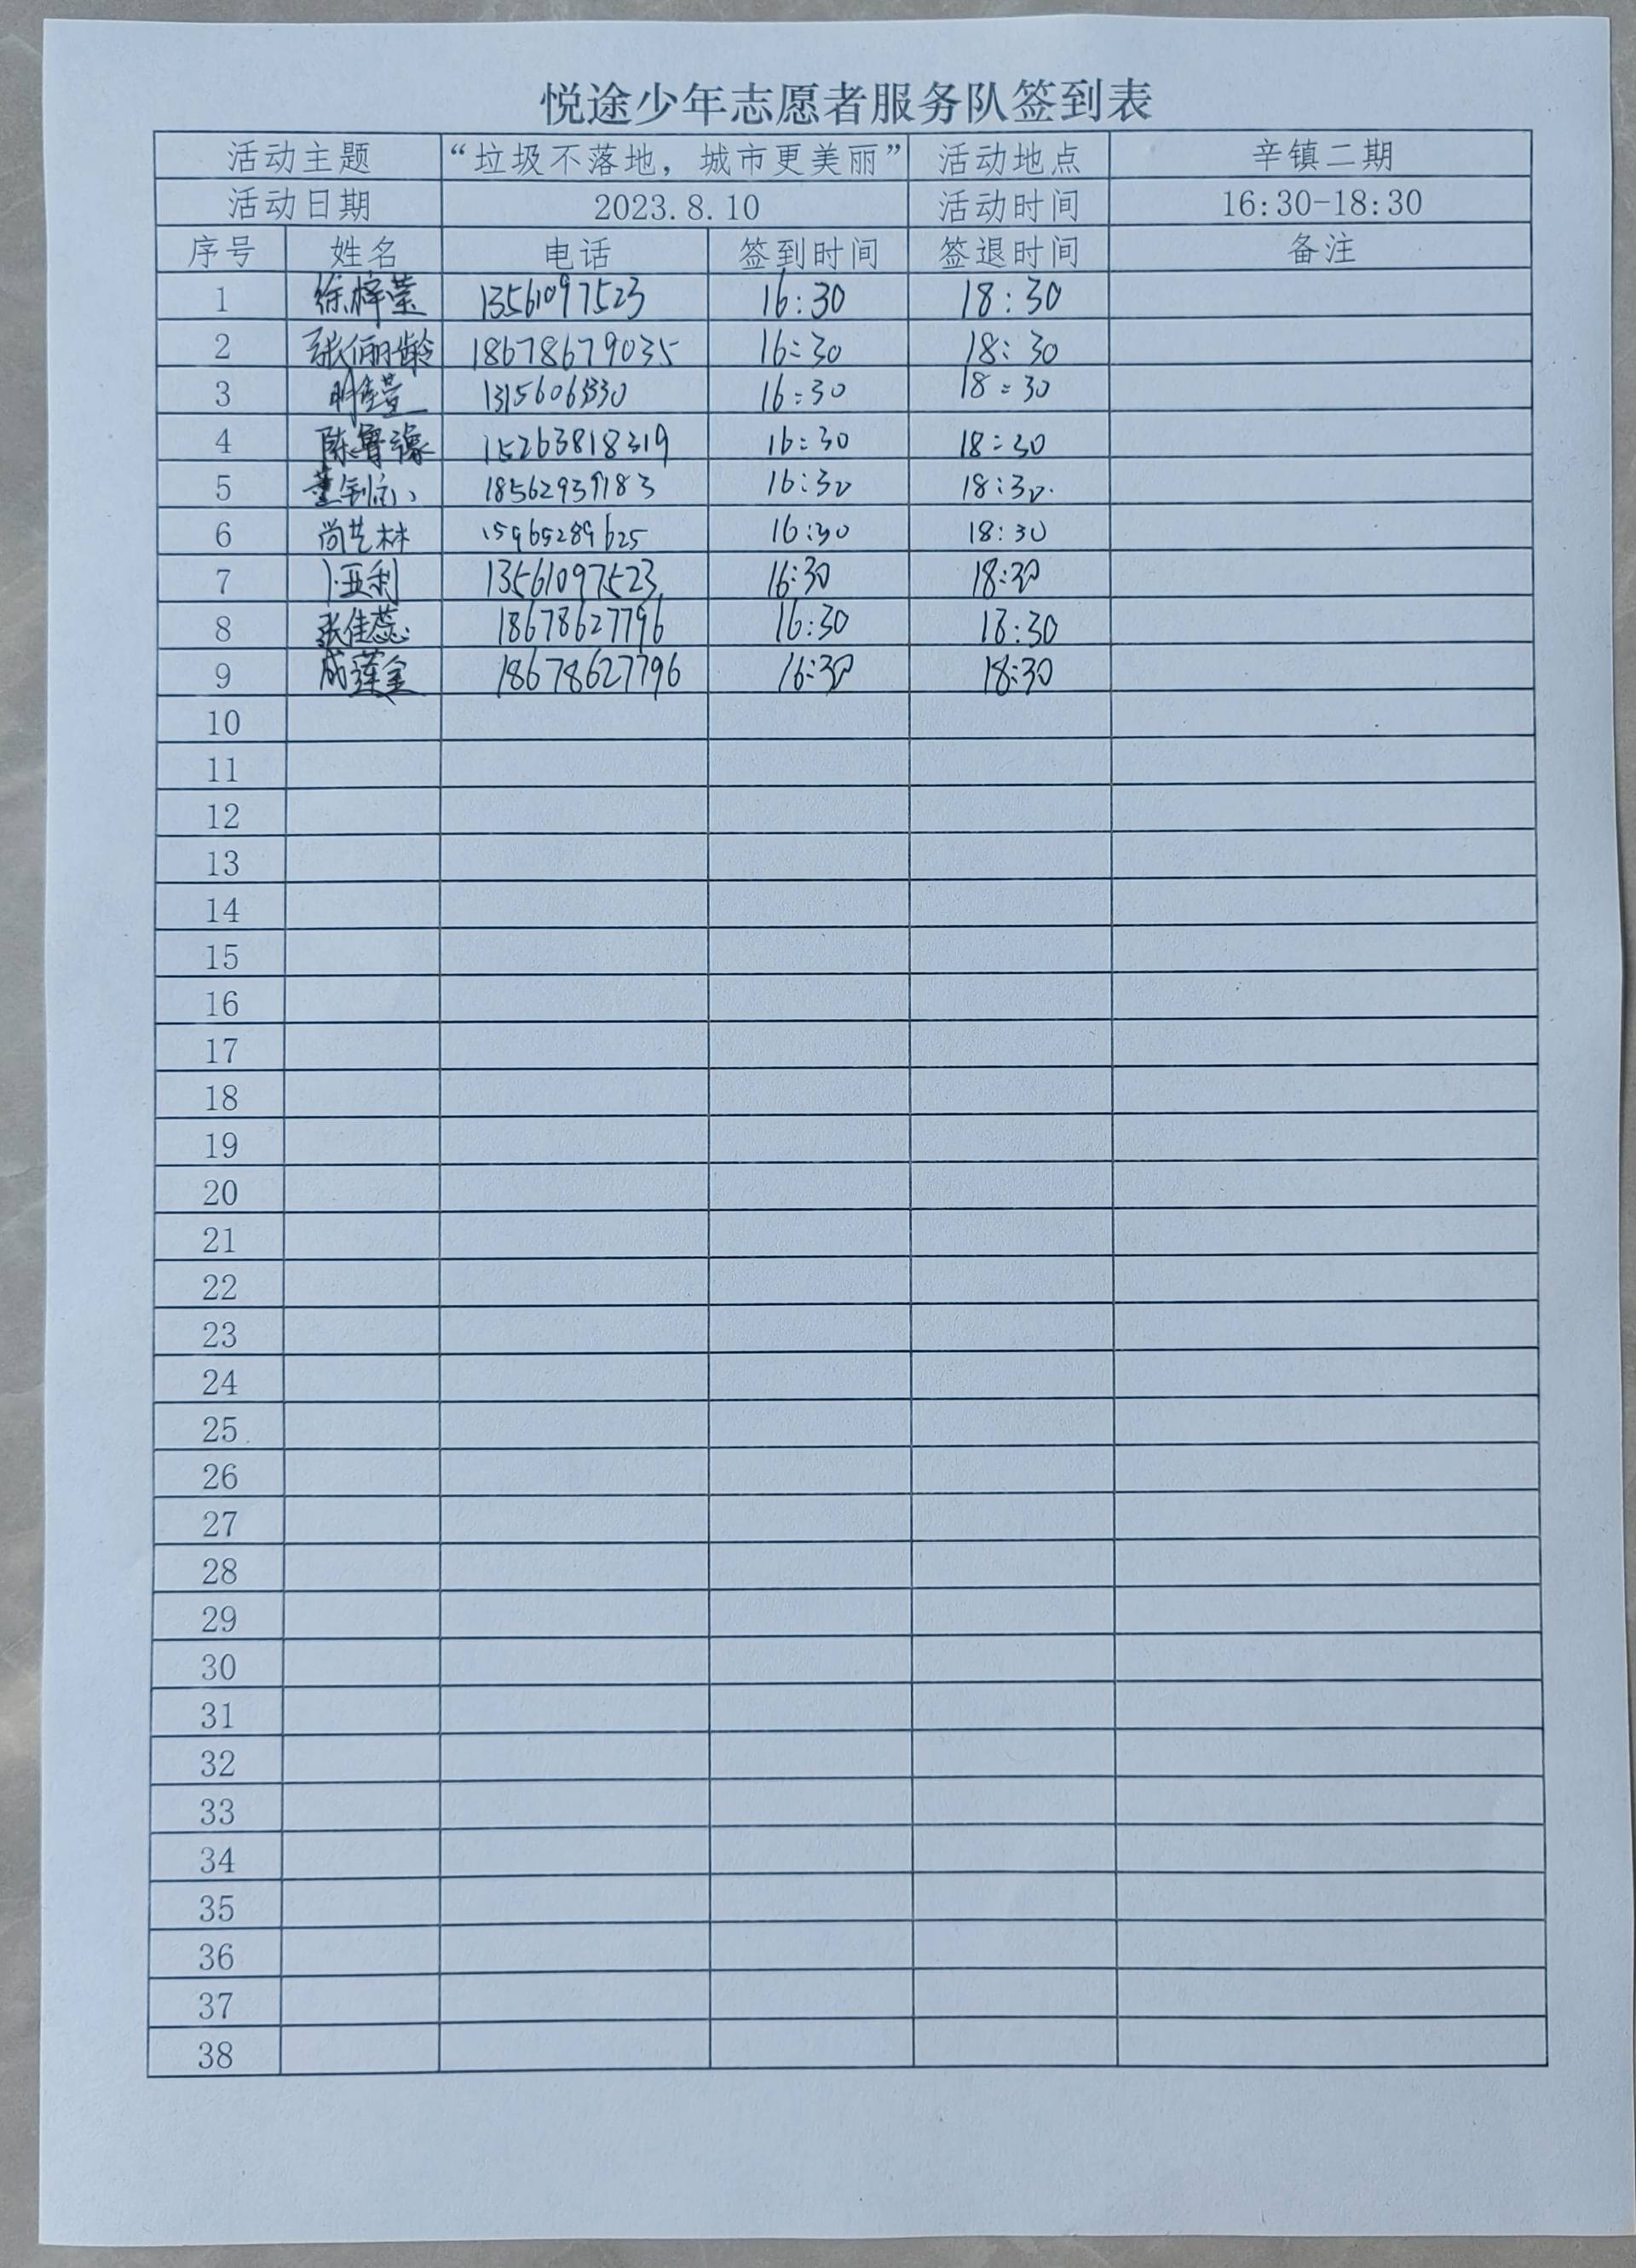 悦途少年志愿者服务队签到表
活动主题 “垃圾不落地，城市更美丽” 活动地点 辛镇二期
活动日期 2023.8.10 活动时间 16:30-18:30
序号 姓名 电话 签到时间 签退时间 备注
1 徐梓莹 13561097523 16:30 18:30
2 张俪龄 18678679035 16:30 18:30
3 16:30 18:30
4 陈鲁豫 15263818319 16:30 18:30
5 18562939183 16:30 18:30
6 尚艺林 15965289625 16:30 18:30
7 卜亚利 13561097523 16:30 18:30
8 张佳蕊 18678627796 16:30 18:30
9 成莲金 18678627796 16:30 18:30
10
11
12
13
14
15
16
17
18
19
20
21
22
23
24
25
26
27
28
29
30
31
32
33
34
35
36
37
38